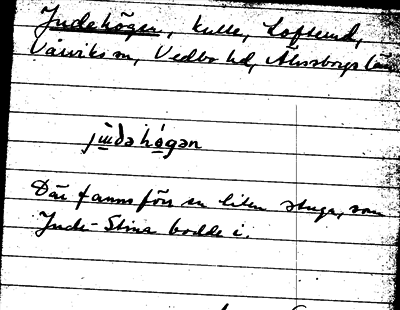 Judehögen, kulle, Loftsund,
Vårviks sn, Vedbo hd, Älvsborgs län
jɯ̀dəhó̱gən
Där fanns förr en liten stuga, som
Jude-Stina bodde i.